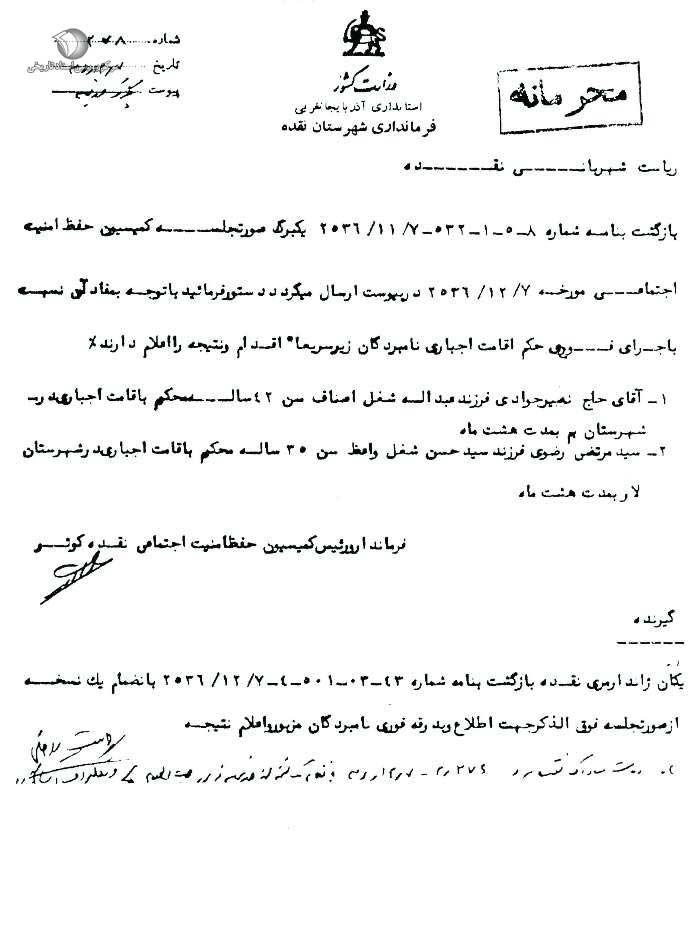 شماره ۲۷۸
تاریخ
پیوست
مرکز بررسی اسناد تاریخی
وزارت کشور
استانداری آذربایجانغربی
فرمانداری شهرستان نقده
محرمانه
ریاست شهربانی نقده
بازگشت بنامه شماره ۸-۵-۱-۵۳۲-۲۵۳۶/۱۱/۷ یکبرگ صورتجلسه کمیسیون حفظ امنیت
اجتماعی مورخه ۲۵۳۶/۱۲/۷ درپیوست ارسال میگردد دستورفرمائید باتوجه بمفادآن نسبت
باجرای فوری حکم اقامت اجباری نامبردگان زیرسریعا" اقدام ونتیجه رااعلام دارند٪
۱- آقای حاج نصیرجوادی فرزندعبداله شغل اصناف سن ۴۲ ساله محکم باقامت اجباری در
شهرستان بم بمدت هشت ماه
۲- سید مرتضی رضوی فرزند سیدحسن شغل واعظ سن ۳۵ ساله محکم باقامت اجباری درشهرستان
لار بمدت هشت ماه
فرماندارورئیس کمیسیون حفظ امنیت اجتماعی نقده کوثر
گیرنده
یکان ژاندارمری نقده بازگشت بنامه شماره ۴۳-۰۳-۵۰۱-۴-۲۵۳۶/۱۲/۷ بانضمام یك نسخه
ازصورتجلسه فوق الذکرجهت اطلاع وبدرقه فوری نامبردگان مزبورواعلام نتیجه
ریاست ساواک نقده